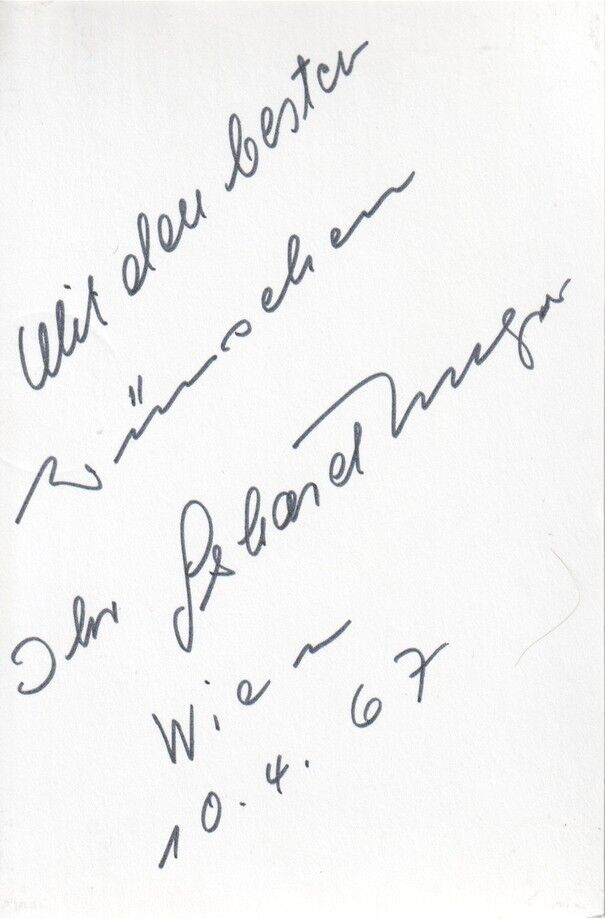 Mit den besten
Wünschen
Ihr Gerhard
Wien
10.4.67